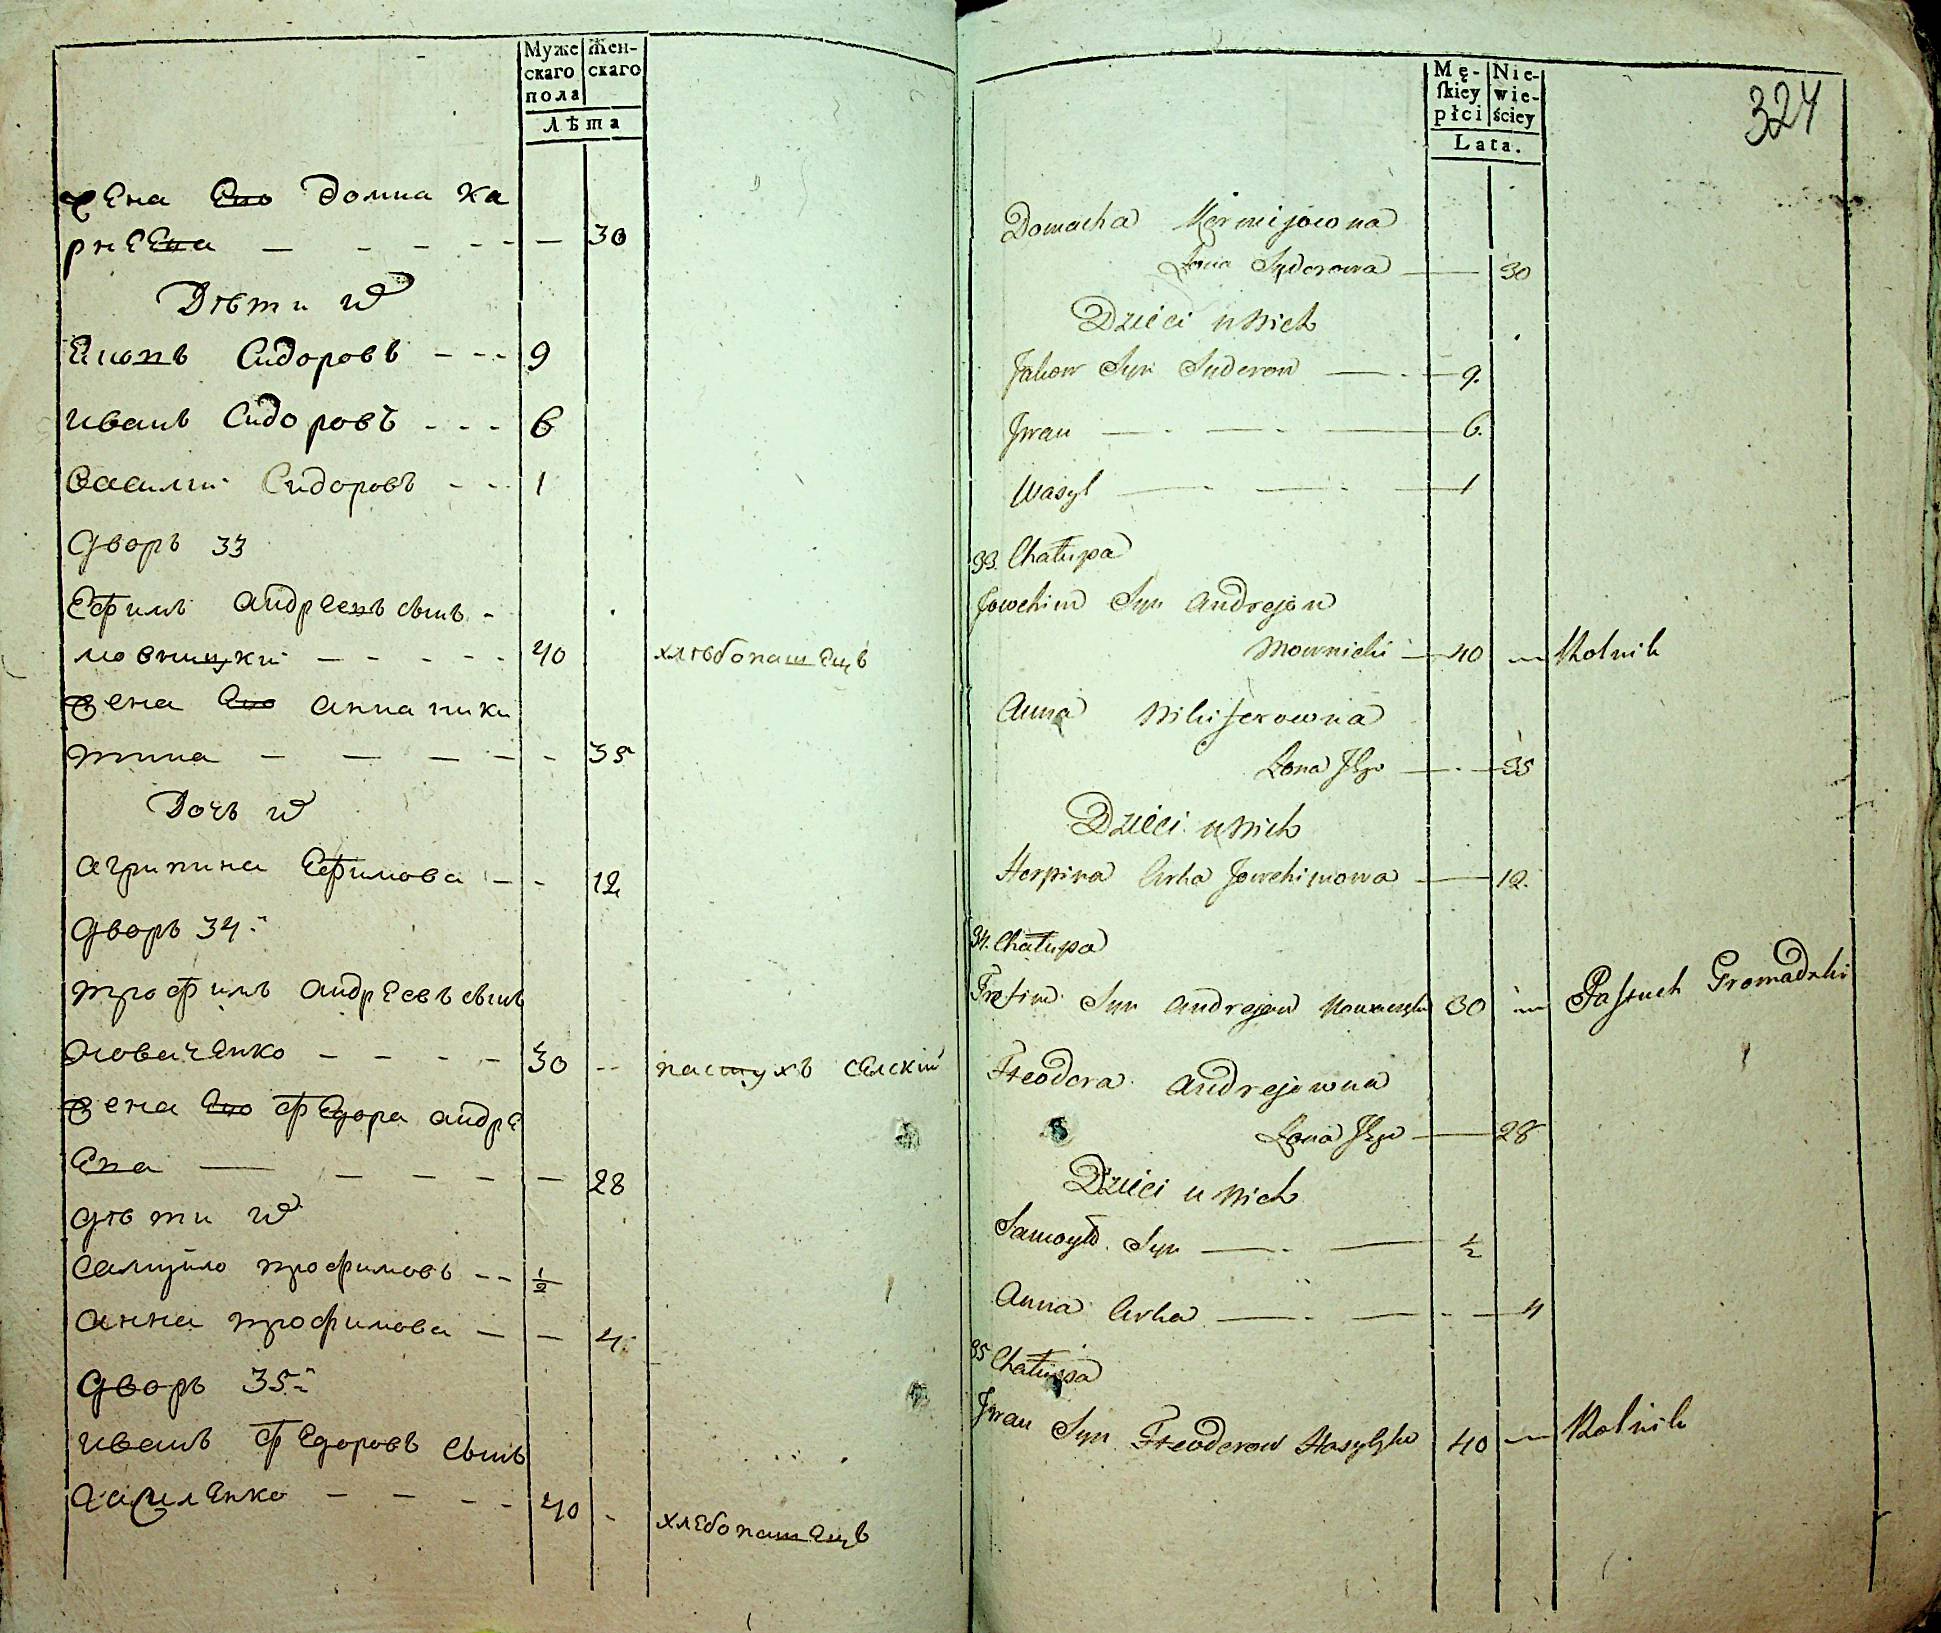 Муже
скаго
пола
Жен-
скаго
лѣта
жена Его домна ка
рнЕЕва — - - - - — 30
Дѣти
Сидоровъ - - - 9
иванъ Сидоровъ - - - 6
василий Сидоровъ - - - 1
дворъ 33
Ефимъ андреевъ сынъ -
мовницкий - - - - - 40 хлѣбопашецъ
жена Его анна ники
тина — — — - - 35
Дочь
агрипина Ефимова - - 12
дворъ 34
трофимъ андреевъ сынъ
- - - - 30 -- пастухъ сЕлский
жена Его фЕдора андрЕ
Ева — - - - - 28
дѣти
самуйло трофимовъ -- 1/2
анна трофимова — — 4
дворъ 35
иванъ фЕдоровъ сынъ
- - - - 40 - хлЕбопашЕцъ
Mę-
ſkiey
płci
Nie-
wie-
ściey
Lata.
324
Domacha
Żona Syderowa — 30
Dzieci u Nich
Jakow Syn Syderow — . — 9.
Jwan — . — . — 6.
Wasyl — . — . — 1
33. Chałupa
Jowchim Syn Andrejow
Mownicki — 40 — Rolnik
Anna Nikiferowna
Żona Jego — . — 35
Dzieci u Nich
Horpina Curka Jowchimowa — 12.
34. Chałupa
Trofim Syn Andrejow 30 — Paſtuch Gromadzki
Fteodora Andrejowna
Żona Jego — 28
Dzieci u Nich
Samoyło Syn — . — 1/2
Anna Curka — . — . — 4
35 Chałupa
Jwan Syn Fteoderow 40 — Rolnik